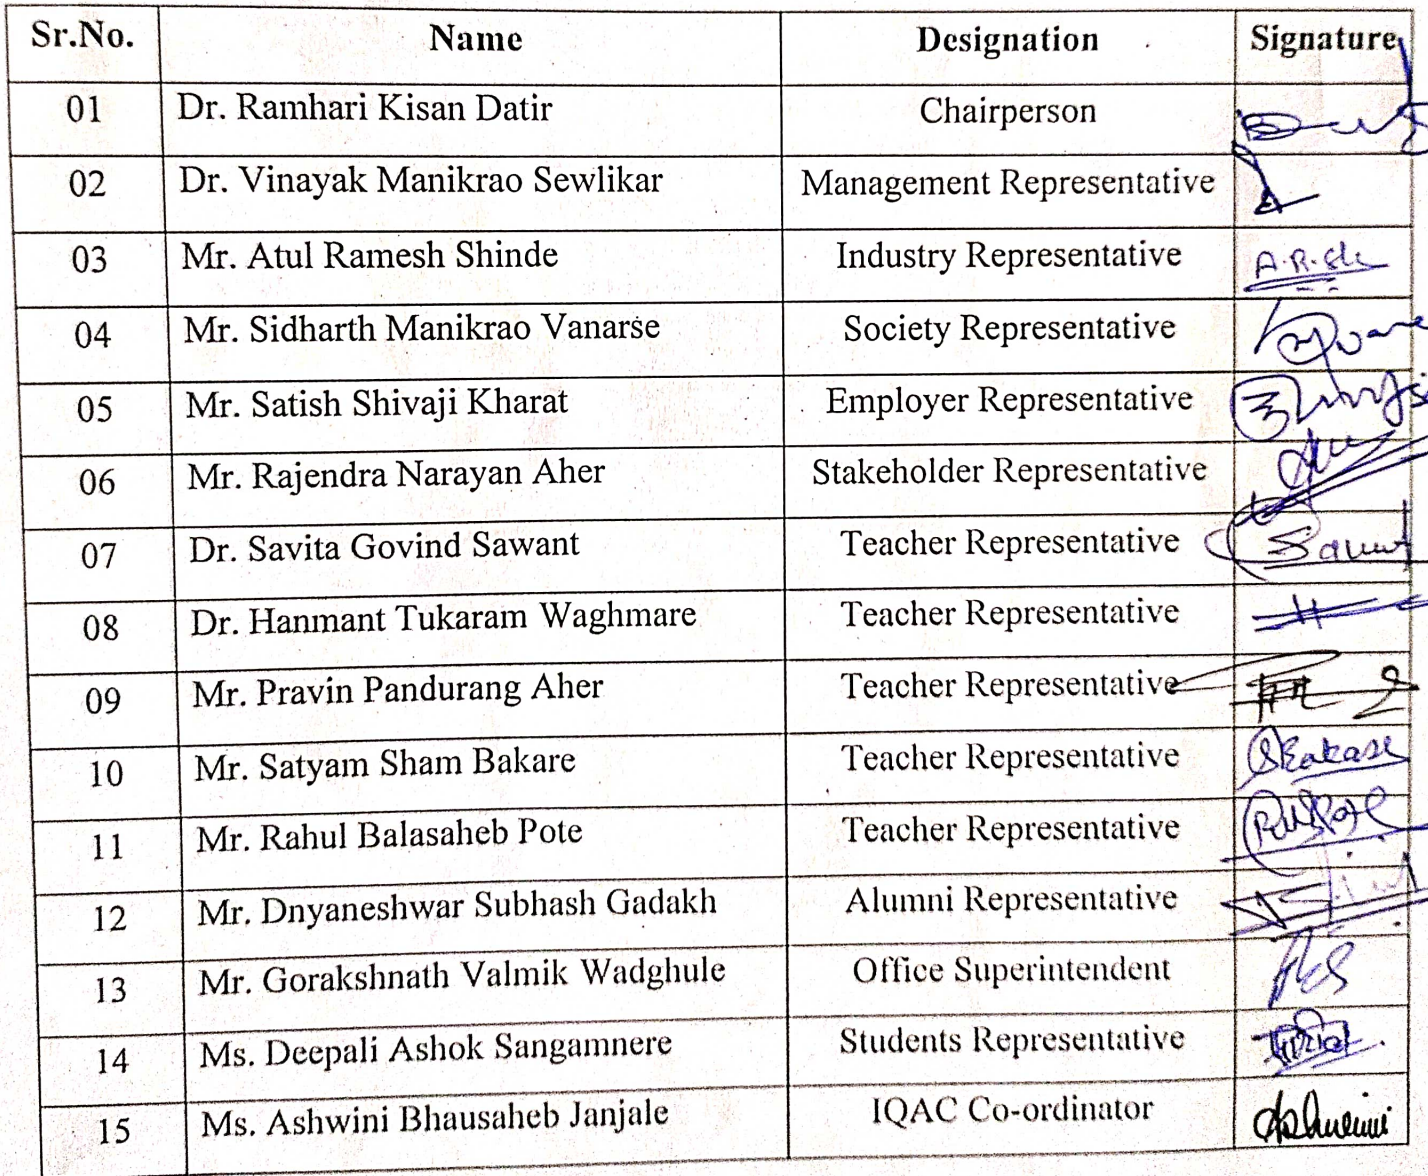 Sr.No. Name Designation Signature
01 Dr. Ramhari Kisan Datir Chairperson
02 Dr. Vinayak Manikrao Sewlikar Management Representative
03 Mr. Atul Ramesh Shinde Industry Representative
04 Mr. Sidharth Manikrao Vanarse Society Representative
05 Mr. Satish Shivaji Kharat Employer Representative
06 Mr. Rajendra Narayan Aher Stakeholder Representative
07 Dr. Savita Govind Sawant Teacher Representative Sawant
08 Dr. Hanmant Tukaram Waghmare Teacher Representative
09 Mr. Pravin Pandurang Aher Teacher Representative
10 Mr. Satyam Sham Bakare Teacher Representative
11 Mr. Rahul Balasaheb Pote Teacher Representative
12 Mr. Dnyaneshwar Subhash Gadakh Alumni Representative
13 Mr. Gorakshnath Valmik Wadghule Office Superintendent
14 Ms. Deepali Ashok Sangamnere Students Representative
15 Ms. Ashwini Bhausaheb Janjale IQAC Co-ordinator Ashwini